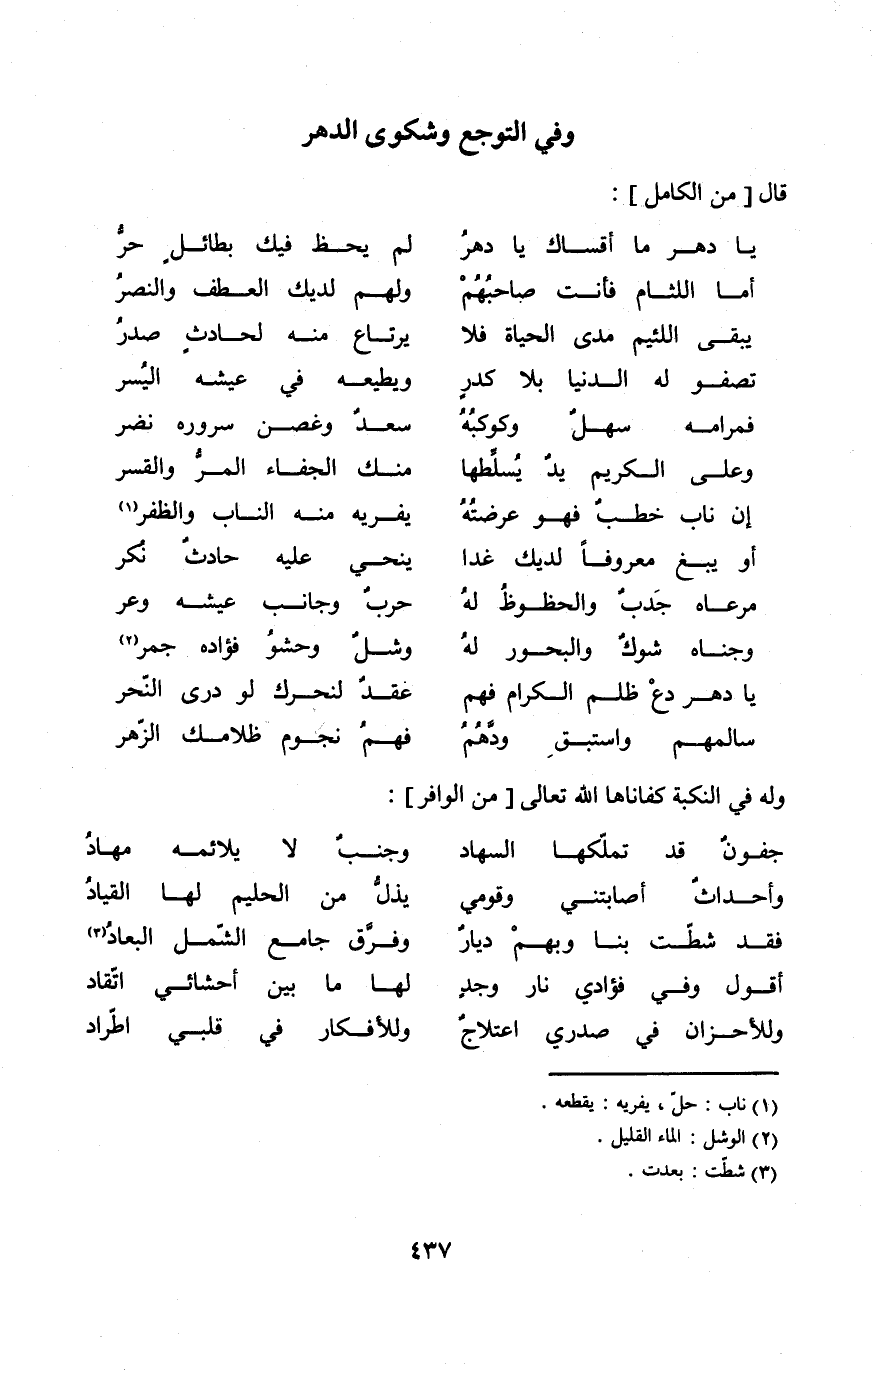 وفي التوجع وشكوى الدهر
قال [ من الكامل ] :
يا دهر ما أقساك يا دهرُ لم يحظ فيك بطائلٍ حرُّ
أما اللئام فأنت صاحبُهُمْ ولهم لديك العطف والنصرُ
يبقى اللئيم مدى الحياة فلا يرتاع منه لحادثٍ صدرُ
تصفو له الدنيا بلا كدرٍ ويطيعه في عيشه اليُسر
فمرامه سهلٌ وكوكبُهُ سعدٌ وغصن سروره نضر
وعلى الكريم يدٌ يُسلِّطها منك الجفاء المرُّ والقسر
إن ناب خطبٌ فهو عرضتُهُ يفريه منه الناب والظفر(١)
أو يبغ معروفاً لديك غدا ينحي عليه حادثٌ نُكر
مرعاه جَدبٌ والحظوظُ لهُ حربٌ وجانب عيشه وعر
وجناه شوكٌ والبحور لهُ وشلٌ وحشوُ فؤاده جمر(٢)
يا دهر دعْ ظلم الكرام فهم عقدٌ لنحرك لو درى النّحر
سالمهم واستبقِ ودَّهُمُ فهمُ نجوم ظلامك الزّهر
وله في النكبة كفاناها الله تعالى [ من الوافر ] :
جفونٌ قد تملّكها السهاد وجنبٌ لا يلائمه مهادُ
وأحداثٌ أصابتني وقومي يذلُّ من الحليم لها القيادُ
فقد شطّت بنا وبهمْ ديارٌ وفرَّق جامع الشّمل البعادُ(٣)
أقول وفي فؤادي نار وجدٍ لها ما بين أحشائي اتّقاد
وللأحزان في صدري اعتلاجٌ وللأفكار في قلبي اطّراد
(١) ناب : حلّ ، يفريه : يقطعه .
(٢) الوشل : الماء القليل .
(٣) شطّت : بعدت .
٤٣٧